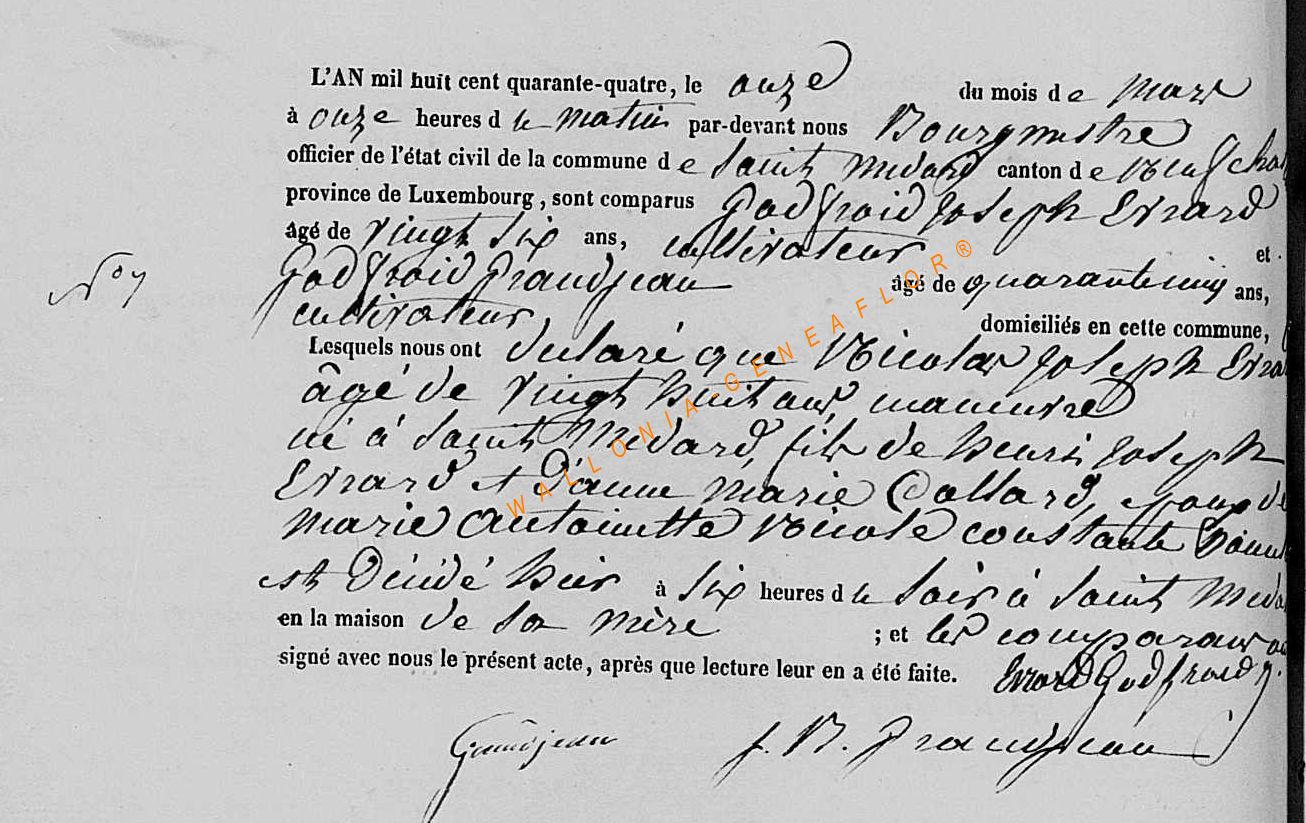 L'AN mil huit cent quarante-quatre, le onze du mois de Mars
à onze heures d le matin par-devant nous Bourgmestre
officier de l'état civil de la commune de Saint Médard canton de
province de Luxembourg, sont comparus Godfroid Joseph Evrard
âgé de vingt six ans, cultivateur et
N° 7
Godfroid Grandjean âgé de quarante cinq ans,
cultivateur, domiciliés en cette commune,
Lesquels nous ont déclaré que Nicolas Joseph
âgé de vingt huit ans, manœuvre
né à Saint Médard, fils de henri Joseph
Evrard et d'anne Marie Collard, epoux de
Marie Antoinette Nicole constante
est décédé hier à six heures d le soir à Saint
en la maison de sa mère ; et les
signé avec nous le présent acte, après que lecture leur en a été faite. Evrard Godfroid J.
Grandjean J. B. Grandjean
WALLONIA-GENEAFLOR®